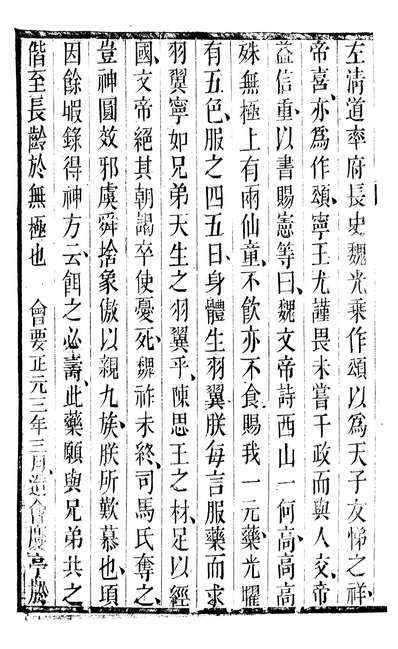 左清道率府長史魏光乘作頌以爲天子友悌之祥
帝喜亦爲作頌寧王尤謹畏未嘗干政而與人交帝
益信重以書賜憲等曰魏文帝詩西山一何高高高
殊無極上有兩仙童不飲亦不食賜我一元藥光耀
有五色服之四五日身體生羽翼朕每言服藥而求
羽翼寧如兄弟天生之羽翼乎陳思王之材足以經
國文帝絕其朝謁卒使憂死魏祚未終司馬氏奪之
豈神圓效邪虞舜捨象傲以親九族朕所歎慕也頃
因餘暇錄得神方云餌之必壽此藥願與兄弟共之
偕至長齡於無極也 會要正元三年三月造會慶亭於